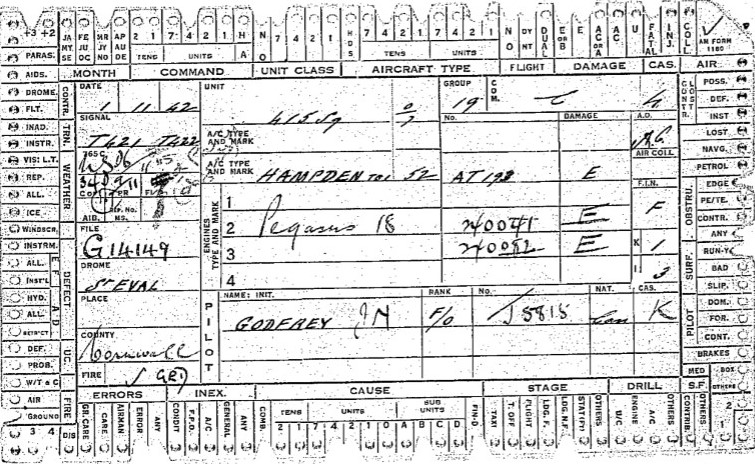 +3 +2 JA MY SE FE JU OC MR JY NO AP AU DE 2 1 7 4 2 1 H N O 7 4 2 1 H D S 7 4 2 1 7 4 2 1 N O DY NT DUAL E OR B E AC OR A ACC U FATAL INJ. COLL AM FORM 1180
TENS UNITS A TENS UNITS
PARAS. MONTH COMMAND UNIT CLASS AIRCRAFT TYPE FLIGHT DAMAGE CAS. AIR
AIDS. DATE UNIT GROUP COM. POSS.
DROME. CONTR. 1 11 42 415 Sq 19 C 4 CONTR. CONST. DEF.
FLT. SIGNAL No. DAMAGE A.D. INST
INAD. TRN. T421 T422 A/C TYPE AND MARK A.G. LOST
INSTR. 765 C. AIR COLL NAVG.
VIS: L.T. WEATHER A/C TYPE AND MARK HAMPDEN TB1 52 AT 193 E PETROL
REP. F.I.N. EDGE
ALL. 1 F OBSTRU. PE/TE.
ICE AID. REP. No. MS. ENGINES TYPE AND MARK 2 Pegasus 18 240041 E CONTR.
WINDSCR. FILE ANY
INSTRM. G14149 3 240082 E K 1 SURF. RUN-Y
ALL. DEFECT DROME I 3 BAD
INST'L ST EVAL 4 SLIP.
HYD. PLACE PILOT NAME: INIT. RANK No. NAT. CAS. PILOT DOM.
ALL. GODFREY JN F/O J5818 Can K FOR.
COUNTY CONT.
DEF. UC. Cornwall BRAKES
PROB. MED BOX
W/T & C FIRE S.F. OTHERS
AIR FIRE ERRORS INEX. CAUSE STAGE DRILL
GROUND GR. CARE CARE AIRMAN ERROR ANY CONDIT F.P.D. A/C GENERAL ANY COMB. TENS UNITS SUB UNITS FIN-D TAXI T. OFF FLIGHT LDG. F. LDG. N.F. STAT(PY) OTHERS U/C ENGINE A/C OTHERS CONTRIB. OTHERS 2
3 4 D/S 2 1 7 4 2 1 0 A B C D 1